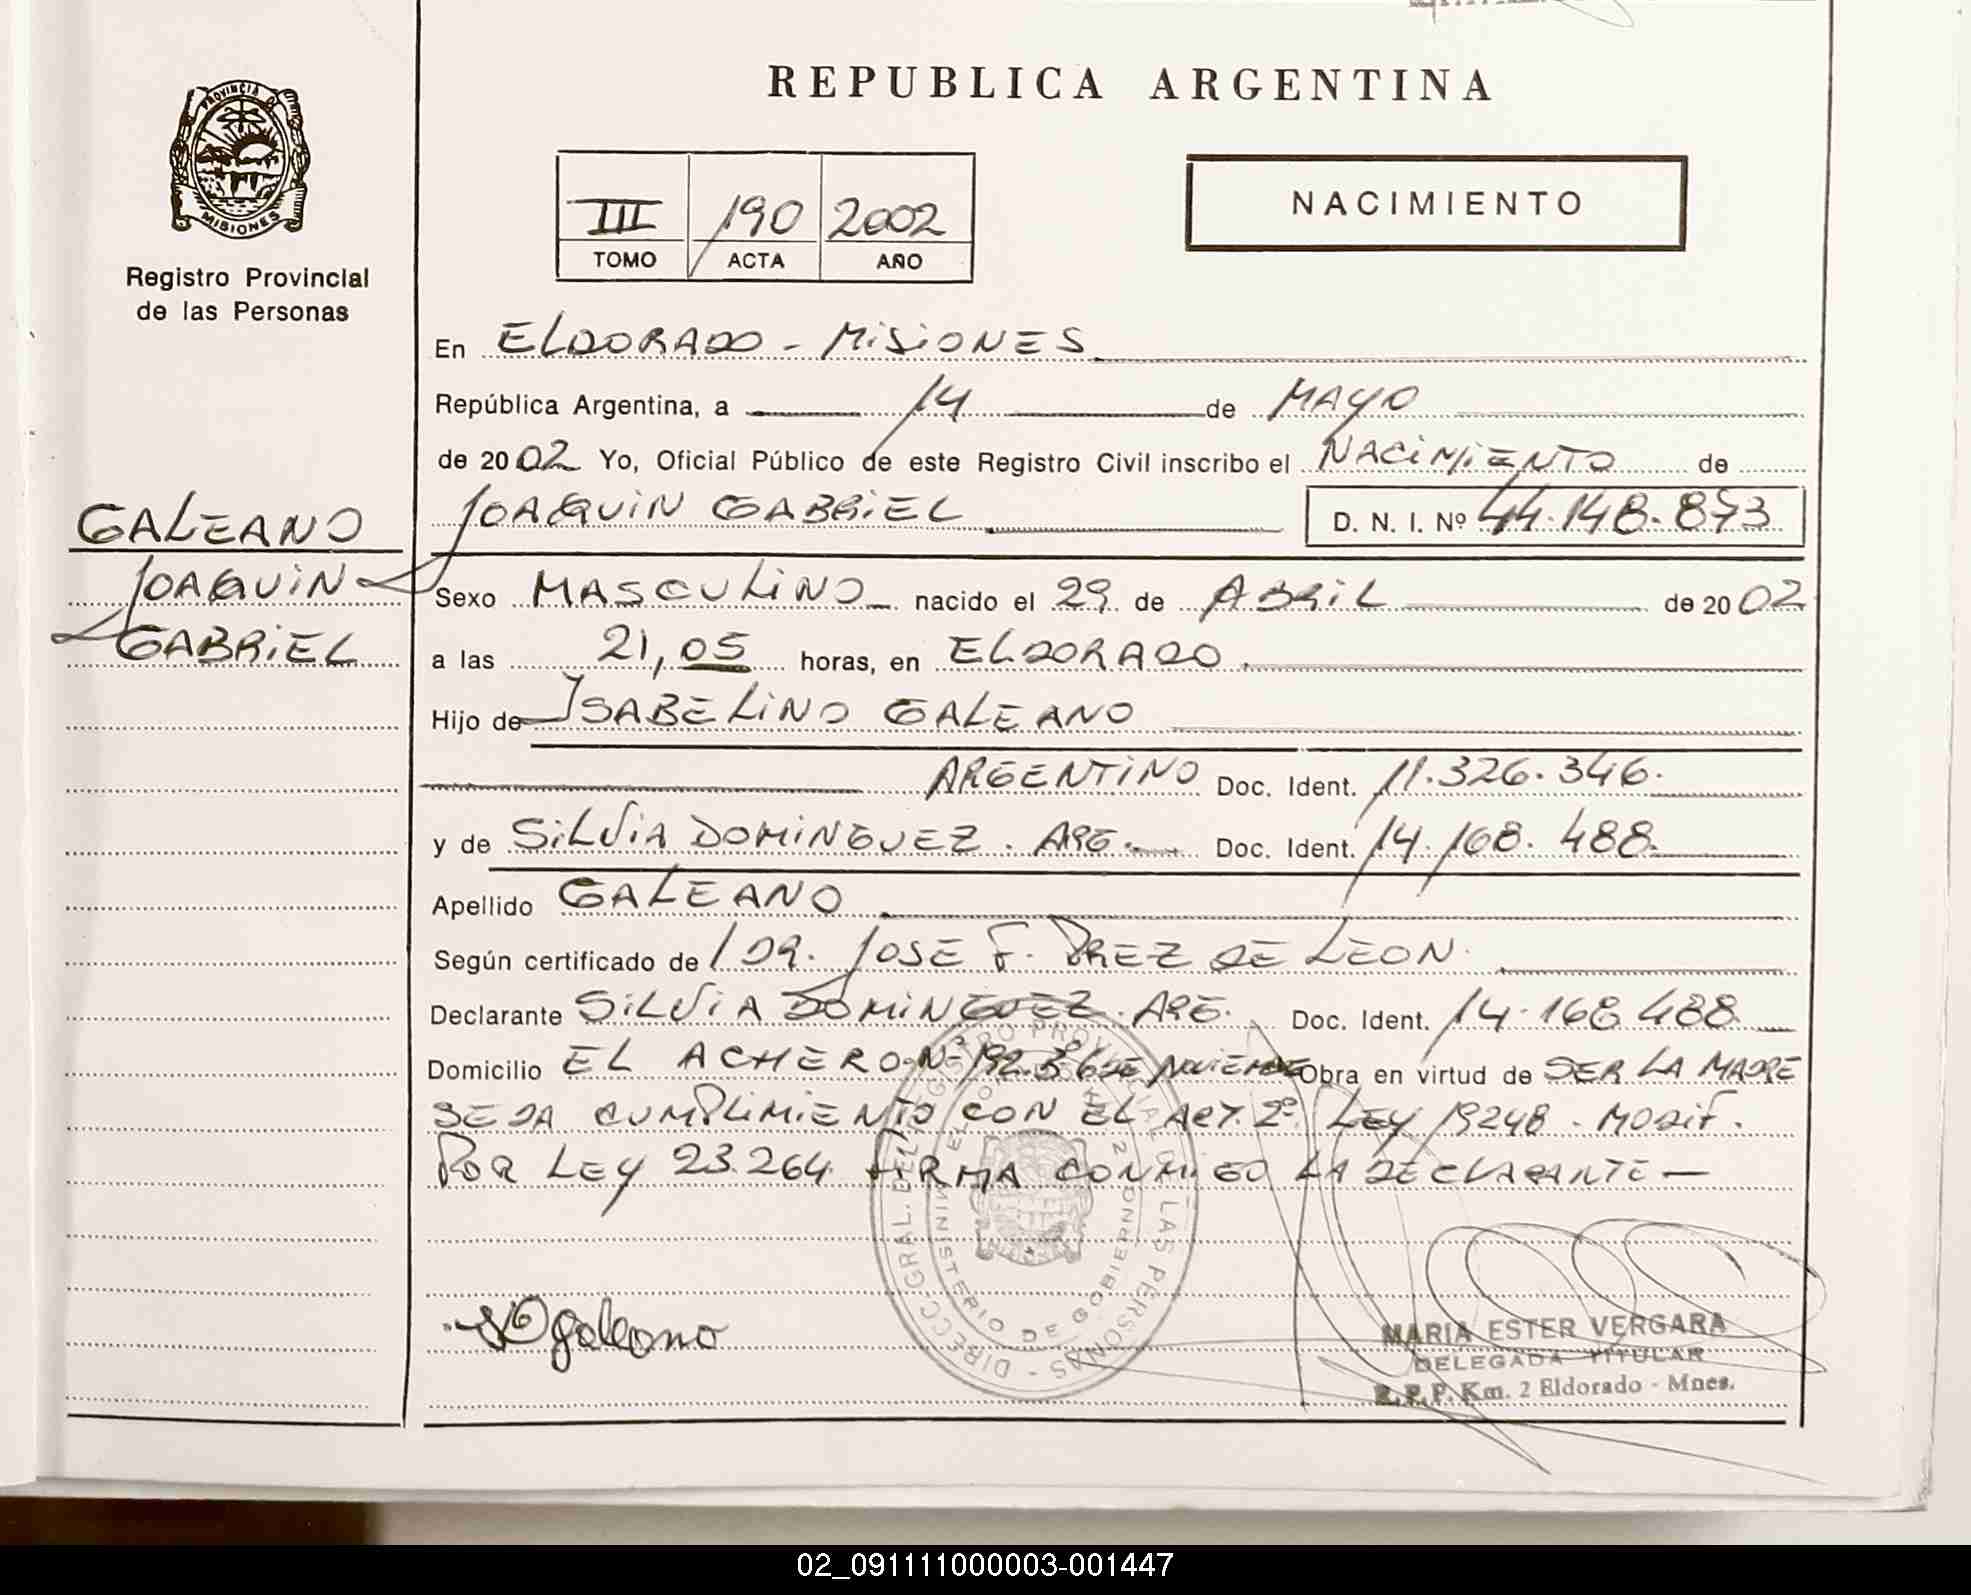 REPUBLICA ARGENTINA
PROVINCIA D
MISIONES
Registro Provincial
de las Personas
III 190 2002
TOMO ACTA AÑO
NACIMIENTO
En ELDORADO - MISIONES
República Argentina, a 14 de MAYO
de 2002 Yo, Oficial Público de este Registro Civil inscribo el NACIMIENTO de
JOAQUIN GABRIEL D. N. I. Nº 44.148.873
GALEANO
JOAQUIN
GABRIEL
Sexo MASCULINO nacido el 29 de ABRIL de 2002
a las 21,05 horas, en ELDORADO
Hijo de ISABELINO GALEANO
ARGENTINO Doc. Ident. 11.326.346.
y de SILVIA DOMINGUEZ. ARG. Doc. Ident. 14.168.488.
Apellido GALEANO
Según certificado de DR. JOSE F. PREZ DE LEON.
Declarante SILVIA DOMINGUEZ. ARG. Doc. Ident. 14.168.488
Domicilio EL ACHERO Nº 192 Bº 6 DE NOVIEMBRE Obra en virtud de SER LA MADRE
SE DA CUMPLIMIENTO CON EL ART. 2º LEY 18248. MODIF.
POR LEY 23.264. FIRMA CONMIGO LA DECLARANTE —
DIRECC. GRAL. DEL REGISTRO PROVINCIAL DE LAS PERSONAS
MINISTERIO DE GOBIERNO
galeano
MARIA ESTER VERGARA
DELEGADA TITULAR
R.P.P. Km. 2 Eldorado - Mnes.
02_091111000003-001447